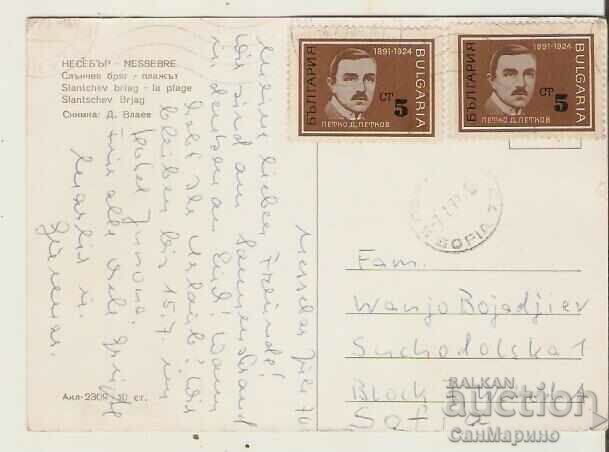 НЕСЕБЪР - NESSEBRE
Слънчев бряг - плажът
Slantchev briag - la plage
Slantschev Brjag
Снимка: Д. Влаев
БЪЛГАРИЯ
1891-1924
BULGARIA
СТ 5
ПЕТКО Д. ПЕТКОВ
БЪЛГАРИЯ
1891-1924
BULGARIA
СТ 5
ПЕТКО Д. ПЕТКОВ
Meine lieben Freunde!
Wir sind am Sonnenstrand
denken an Euch! Wann
habt Ihr Urlaub? Wir
bleiben bis 15.7. im
Hotel
Für alle viele Grüße
Fam.
Wanjo Bojadjiev
Suchodolska 1
Block
Sofia
Акл-2309 10 ст.
BALKAN
auction
СанМарино